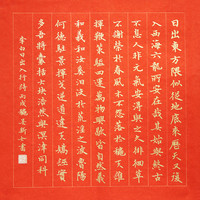 日出東方隈似從地底來歷天又復
入西海六龍所舍安在哉其始與終古
不息人非元氣安得與之久徘徊草
不謝榮於春風木不怨落於秋天誰
揮鞭策驅四運萬物興歇皆自然羲
和羲和汝奚汩沒於荒淫之波魯陽
何德駐景揮戈逆道違天矯誣實
多吾將囊括大塊浩然與溟涬同科
李白日出入行詩丙戌 書